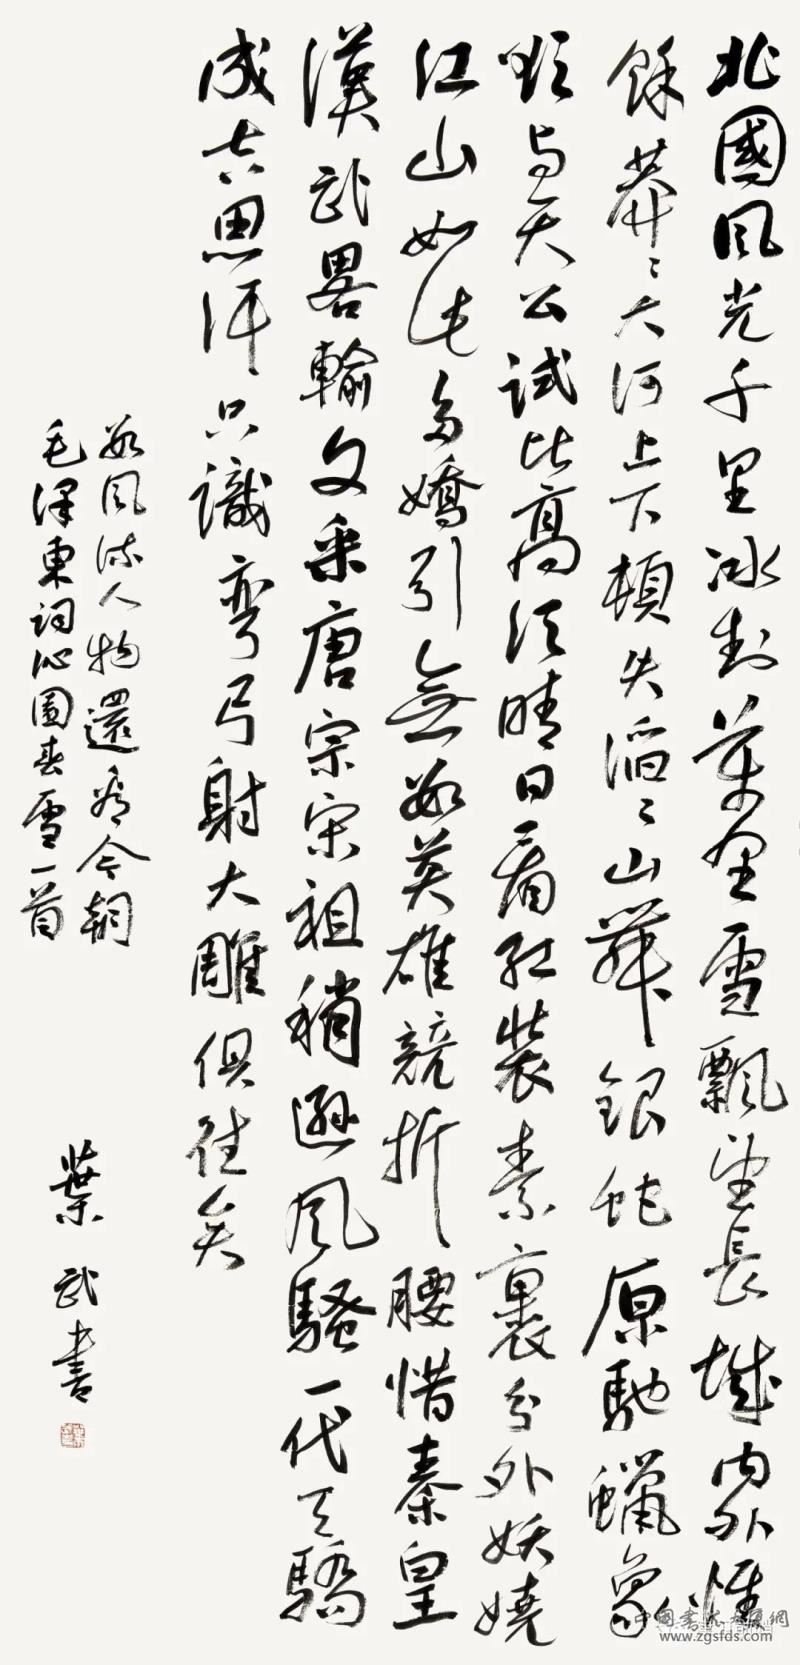 北國風光千里冰封萬里雪飄望長城内外惟
餘莽〻大河上下頓失滔〻山舞銀蛇原馳蠟象
欲与天公試比高須晴日看紅裝素裹分外妖嬈
江山如此多嬌引無數英雄競折腰惜秦皇
漢武畧輸文采唐宗宋祖稍遜風騷一代天驕
成吉思汗只識彎弓射大雕俱往矣
數風流人物還看今朝
毛澤東詞沁園春雪一首
葉武書
中國書法大展網
www.zgsfds.com